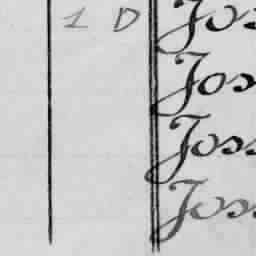 1 D Jos
Jos
Joss
Joss